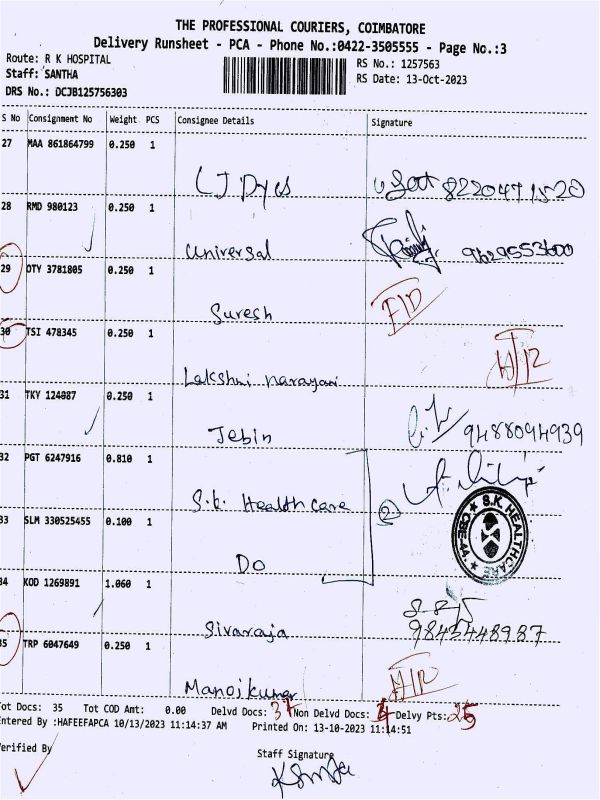 THE PROFESSIONAL COURIERS, COIMBATORE
Delivery Runsheet - PCA - Phone No.:0422-3505555 - Page No.:3
Route: R K HOSPITAL
RS No.: 1257563
Staff: SANTHA
RS Date: 13-Oct-2023
DRS No.: DCJB125756303
S No Consignment No Weight PCS Consignee Details Signature
27 MAA 861864799 0.250 1
LJ Dyes 8220471520
28 RMD 980123 0.250 1
Universal 9629553600
29 OTY 3781805 0.250 1
Suresh
30 TSI 478345 0.250 1
Lakshmi narayan
31 TKY 124087 0.250 1
Jebin 9488094939
32 PGT 6247916 0.810 1
S.k. Health care 2
S.K. HEALTHCARE
33 SLM 330525455 0.100 1
Do
34 KOD 1269891 1.060 1
Sivaraja 9843448987
35 TRP 6047649 0.250 1
Manojkumar
Tot Docs: 35 Tot COD Amt: 0.00 Delvd Docs: Non Delvd Docs: Delvy Pts: 25
Entered By :HAFEEFAPCA 10/13/2023 11:14:37 AM Printed On: 13-10-2023 11:14:51
Verified By
Staff Signature